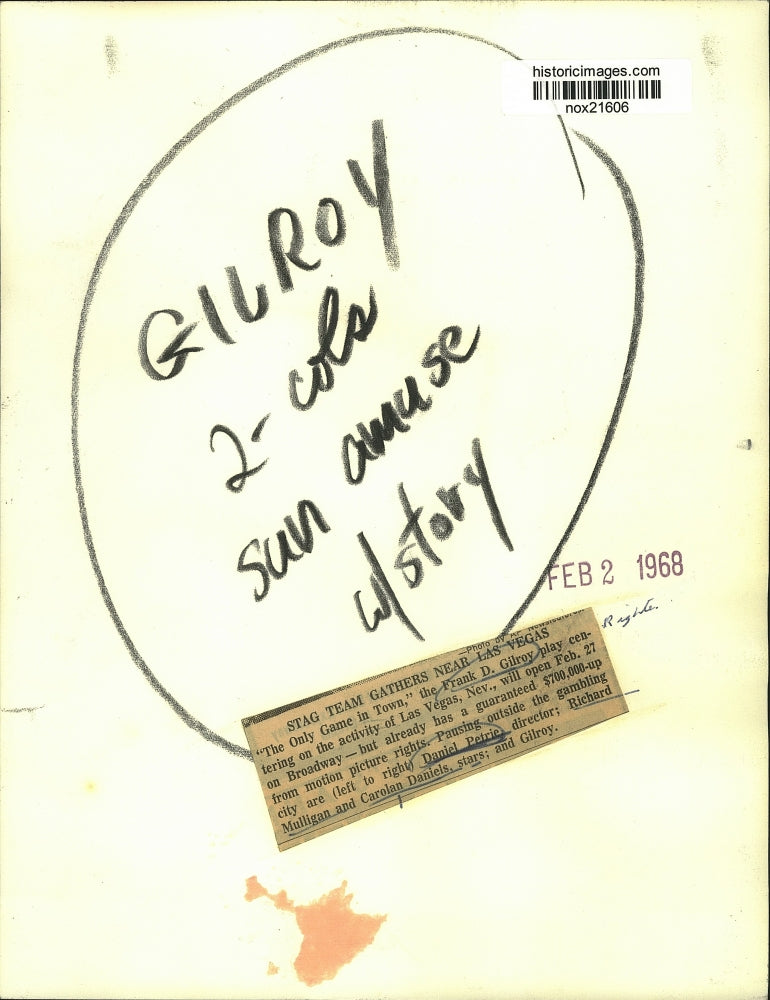 historicimages.com
nox21606
GILROY
2- cols
sun amuse
w/story
FEB 2 1968
Rights.
—Photo by AP Newsfeatures.
STAG TEAM GATHERS NEAR LAS VEGAS
“The Only Game in Town,” the Frank D. Gilroy play cen-
tering on the activity of Las Vegas, Nev., will open Feb. 27
on Broadway—but already has a guaranteed $700,000-up
from motion picture rights. Pausing outside the gambling
city are (left to right) Daniel Petrie, director; Richard
Mulligan and Carolan Daniels, stars; and Gilroy.